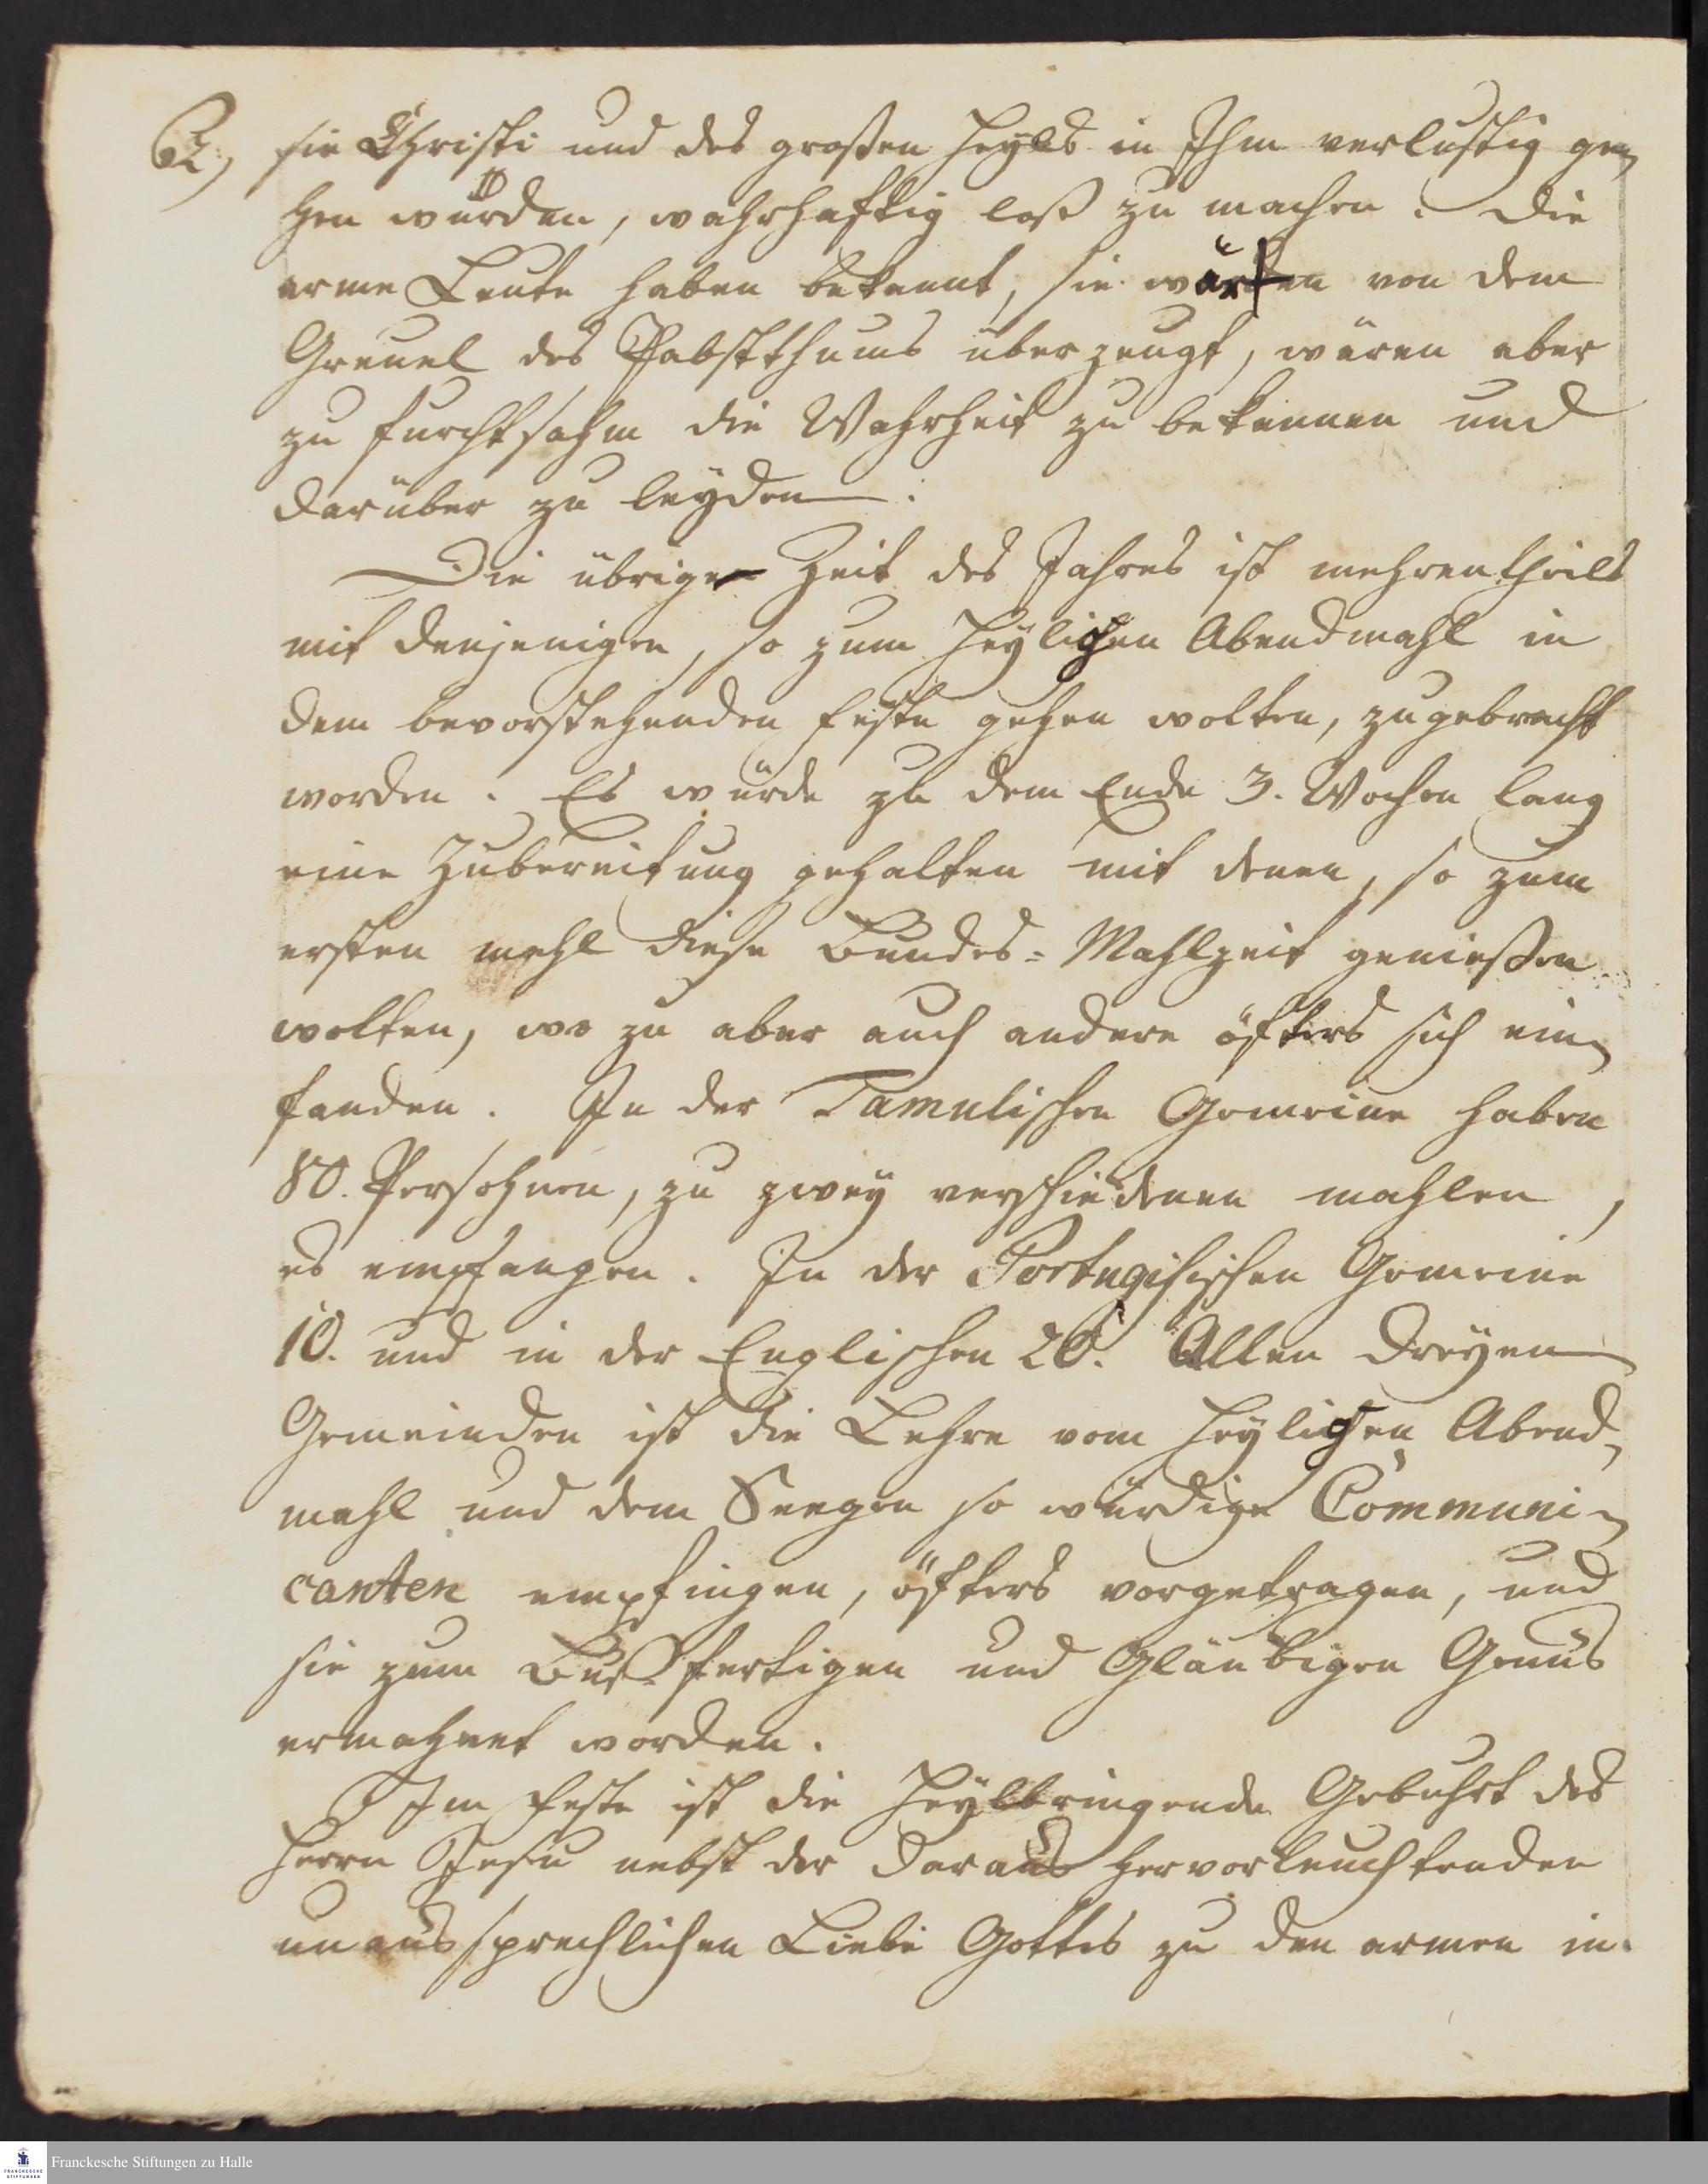 62) sie Christi und des großen Heyls in Ihm verlustig ge¬
hen würden, wahrhafftig loß zu machen. Die
arme Leute haben bekannt, sie wären von dem
Greuel des Pabstthums überzeugt, wären aber
zu furchtsahm die Wahrheit zu bekennen und
darüber zu leyden.
Die übrige Zeit des Jahres ist mehrentheils
mit denjenigen, so zum Heyligen Abendmahl in
dem bevorstehenden Feste gehen wolten, zugebracht
worden. Es wurde zu dem Ende 3. Wochen lang
eine Zubereitung gehalten mit denen, so zum
ersten mahl diese Bundes-Mahlzeit genießen
wolten, wo zu aber auch andere öfters sich ein¬
fanden. In der Tamulischen Gemeine haben
80. Persohnen, zu zwey verschiedenen mahlen,
es empfangen. In der Portugisischen Gemeine
10. und in der Englischen 20. Allen dreyen
Gemeinden ist die Lehre vom Heyligen Abend¬
mahl und dem Seegen so würdige Communi¬
canten empfingen, öfters vorgetragen, und
sie zum Bußfertigen und Gläubigen Genus
ermahnet worden.
Im Feste ist die Heylbringende Gebuhrt des
Herrn Jesu nebst der daraus hervorleuchtenden
unaussprechlichen Liebe Gottes zu den armen in
Franckesche Stiftungen zu Halle
FRANCKESCHE
STIFTUNGEN